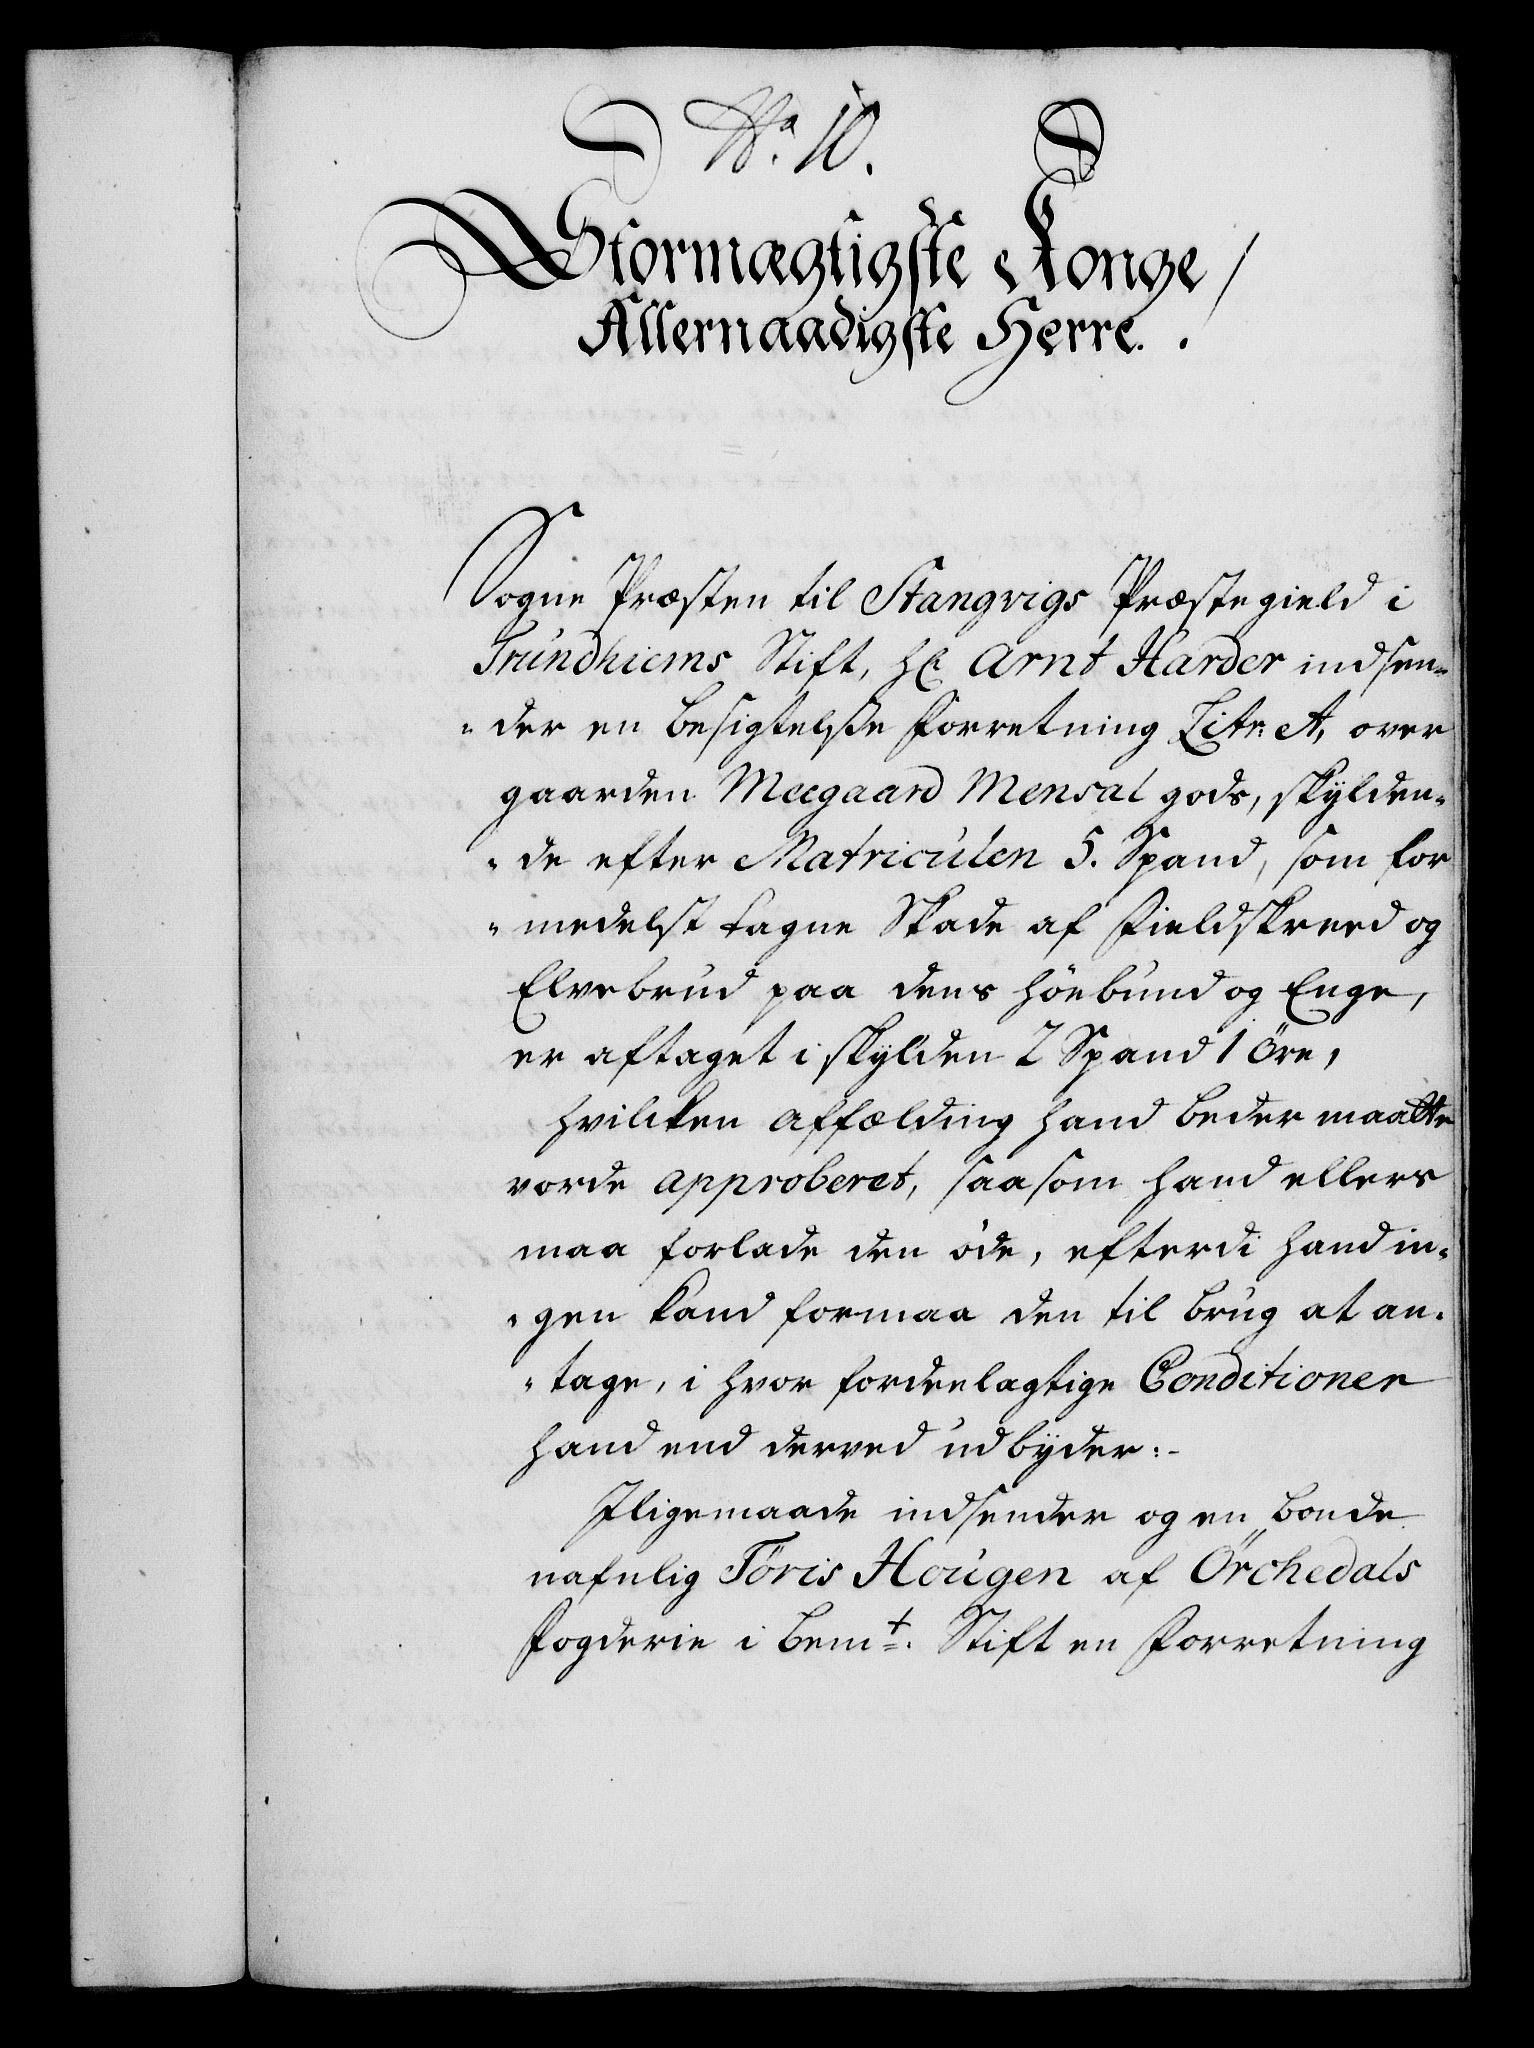 No. 10.
Stormægtigste Konge/
Allernaadigste Herre. .
Sogne Præsten til Stangvigs Præstegield i
Trundhiems Stift, Hr. Arnt Harder indsen-
- der en besigtelse Forretning Litr: A, over
gaarden Meegaard Mensal gods, skÿlden-
- de efter Matriculen 5. Spand, som for
- medelst tagne Skade af Fieldskreed og
Elvebrud paa dens Höebund og Enge,
er aftaget i skÿlden 2 Spand 1 Öre,
hvilcken affælding hand beder maatte
vorde approberet, saasom hand ellers
maa forlade den öde, efterdi hand in-
- gen kand formaa den til brug at an-
- tage, i hvor fordeelagtige Conditioner
hand end derved udbÿder:-
Iligemaade indsender og en bonde
nafnlig Töris Hougen af Örchedals
Fogderie i bemt. Stift en Forretning